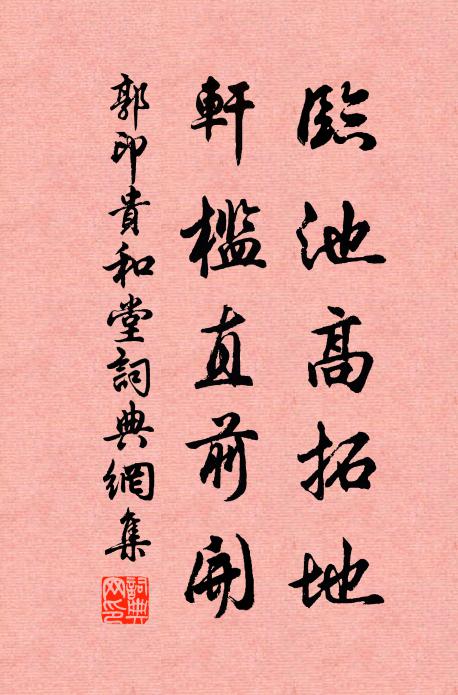 臨池高拓地
軒檻直前開
郭印貴和堂詞典網集
詞典网印